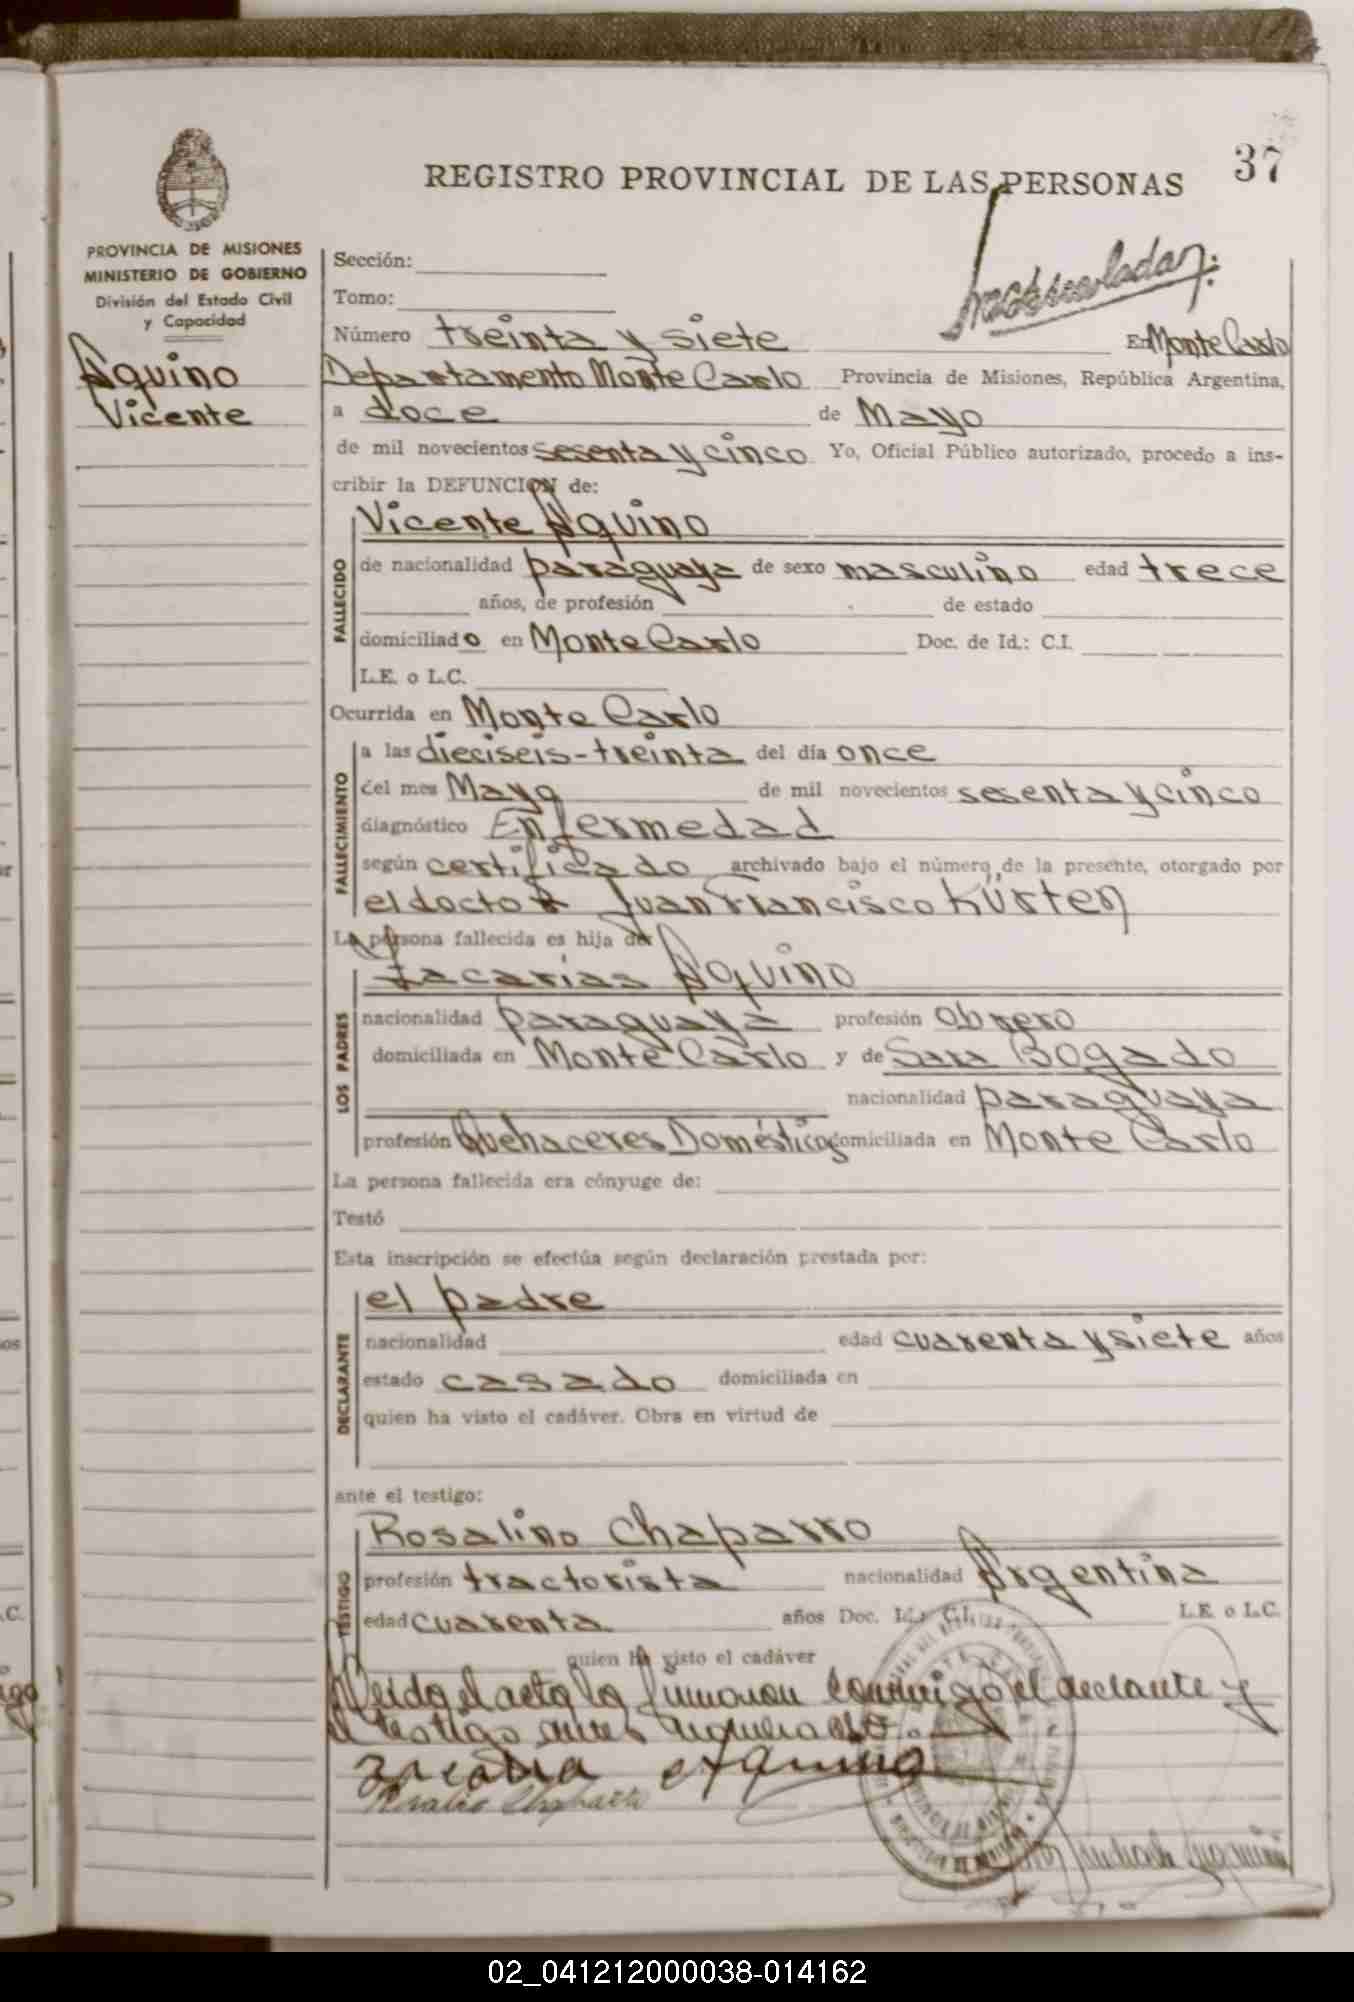 37
REGISTRO PROVINCIAL DE LAS PERSONAS
PROVINCIA DE MISIONES
MINISTERIO DE GOBIERNO
División del Estado Civil
y Capacidad
Aquino
Vicente
Sección:
Tomo:
Número treinta y siete En Monte Carlo
Departamento Monte Carlo Provincia de Misiones, República Argentina,
a doce de Mayo
de mil novecientos sesenta y cinco Yo, Oficial Público autorizado, procedo a ins-
cribir la DEFUNCION de:
Vicente Aquino
FALLECIDO
de nacionalidad paraguaya de sexo masculino edad trece
años, de profesión de estado
domiciliado en Monte Carlo Doc. de Id.: C.I.
L.E. o L.C.
Ocurrida en Monte Carlo
FALLECIMIENTO
a las dieciseis-treinta del día once
del mes Mayo de mil novecientos sesenta y cinco
diagnóstico Enfermedad
según certificado archivado bajo el número de la presente, otorgado por
el doctor Juan Francisco Kürten
La persona fallecida es hija de:
Zacarías Aquino
LOS PADRES
nacionalidad paraguaya profesión obrero
domiciliada en Monte Carlo y de Sara Bogado
nacionalidad paraguaya
profesión Quehaceres Domésticos domiciliada en Monte Carlo
La persona fallecida era cónyuge de:
Testó
Esta inscripción se efectúa según declaración prestada por:
el padre
DECLARANTE
nacionalidad edad cuarenta y siete años
estado casado domiciliada en
quien ha visto el cadáver. Obra en virtud de
ante el testigo:
Rosalino Chaparro
TESTIGO
profesión tractorista nacionalidad Argentina
edad cuarenta años Doc. Id.: C.I. L.E. o L.C.
quien ha visto el cadáver
Leida el acta la firmaron conmigo el declante y
el testigo antes
Aquino
02_041212000038-014162